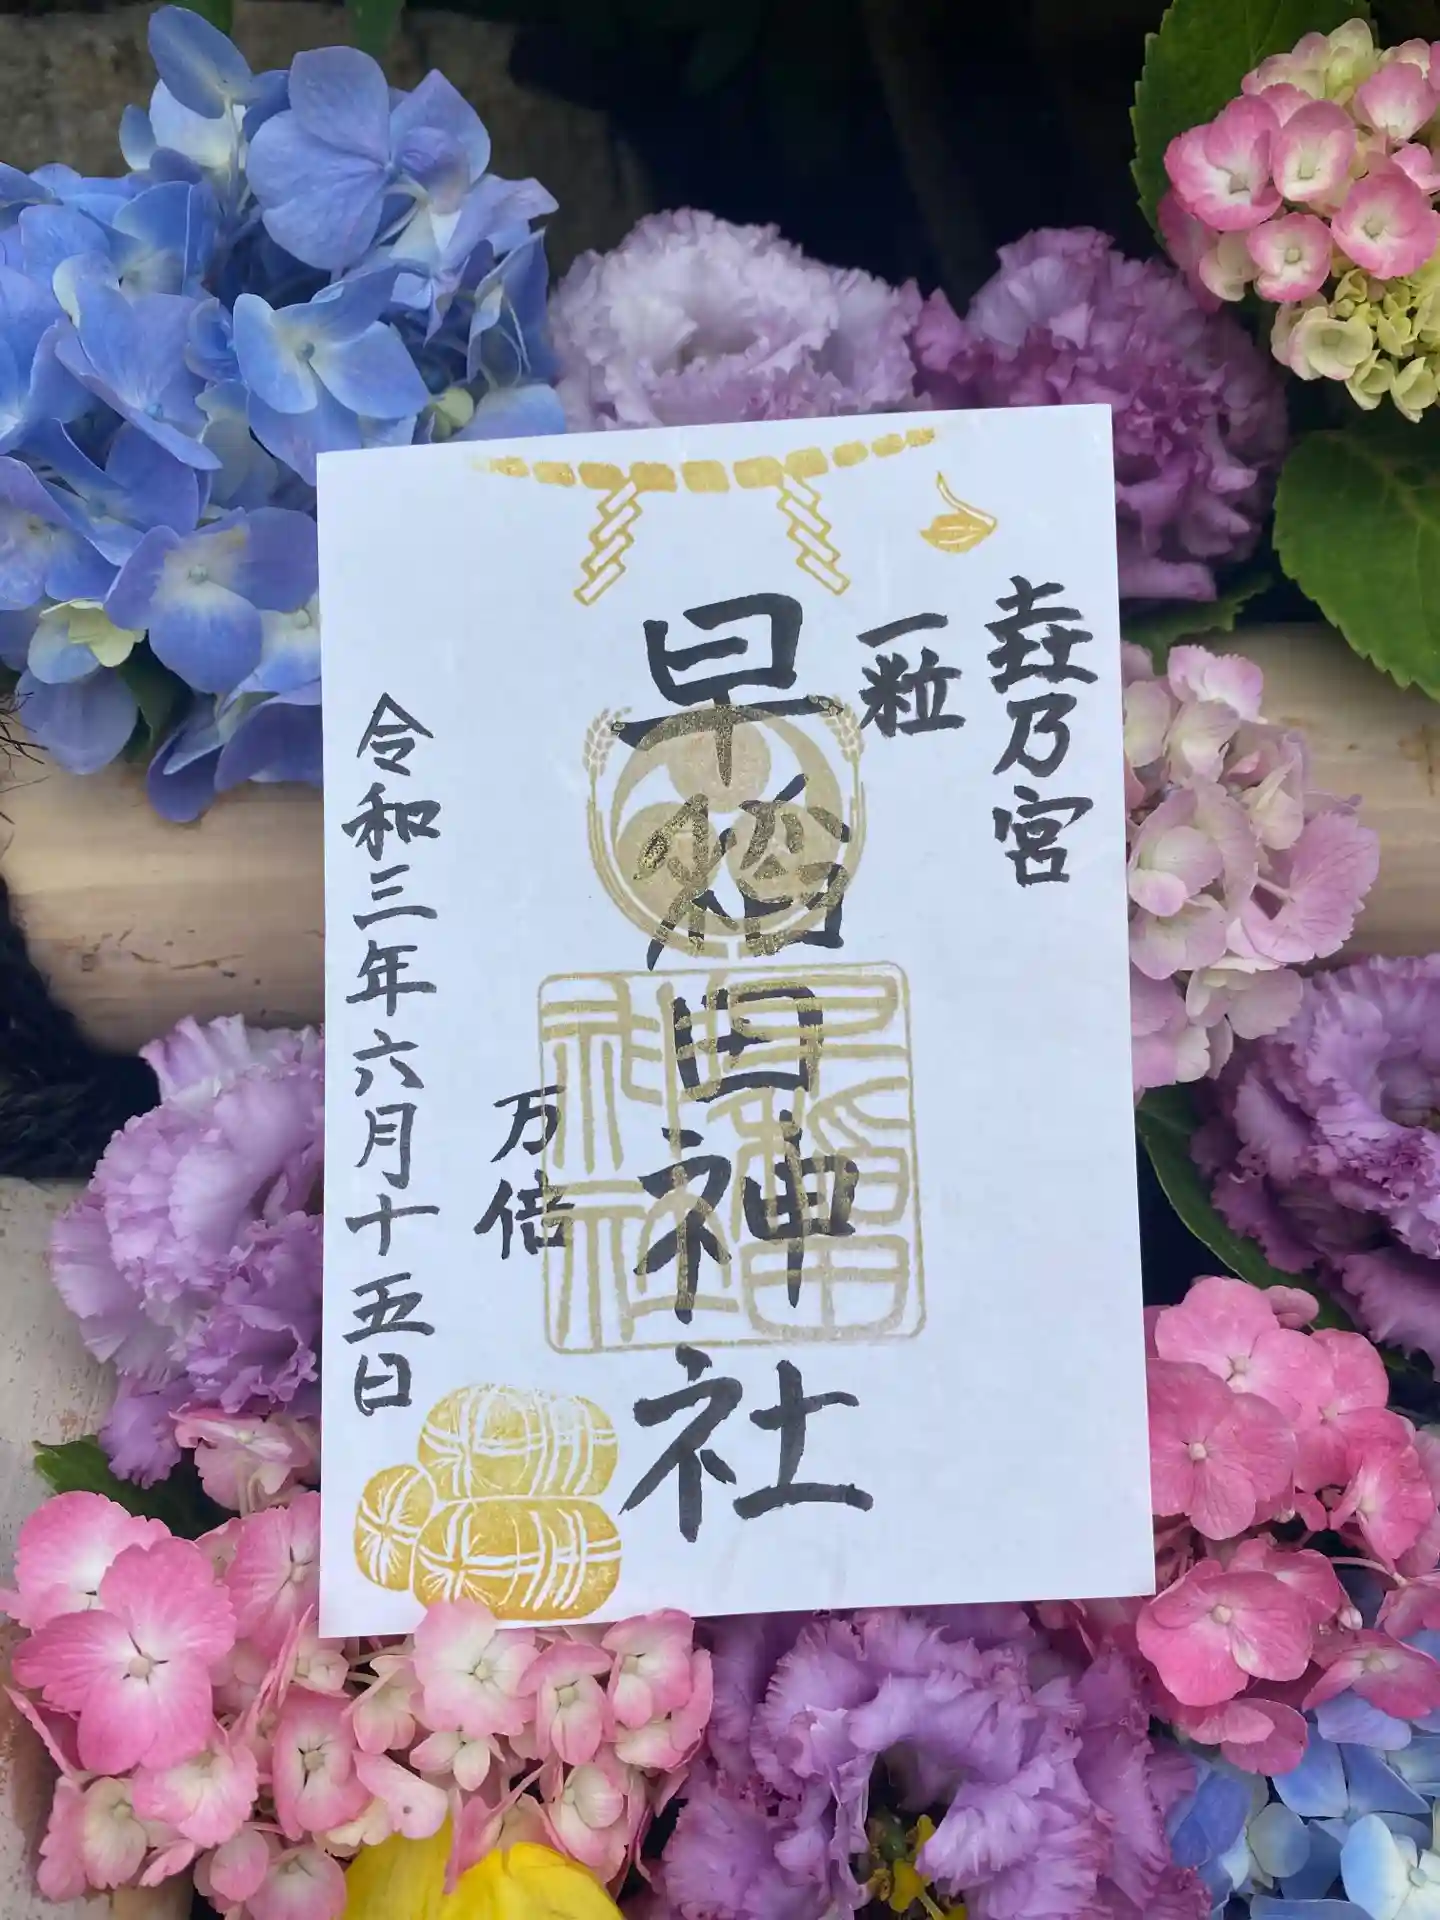 乃宮
一粒
早稲田神社
万倍
令和三年六月十五日
早稲田
神社